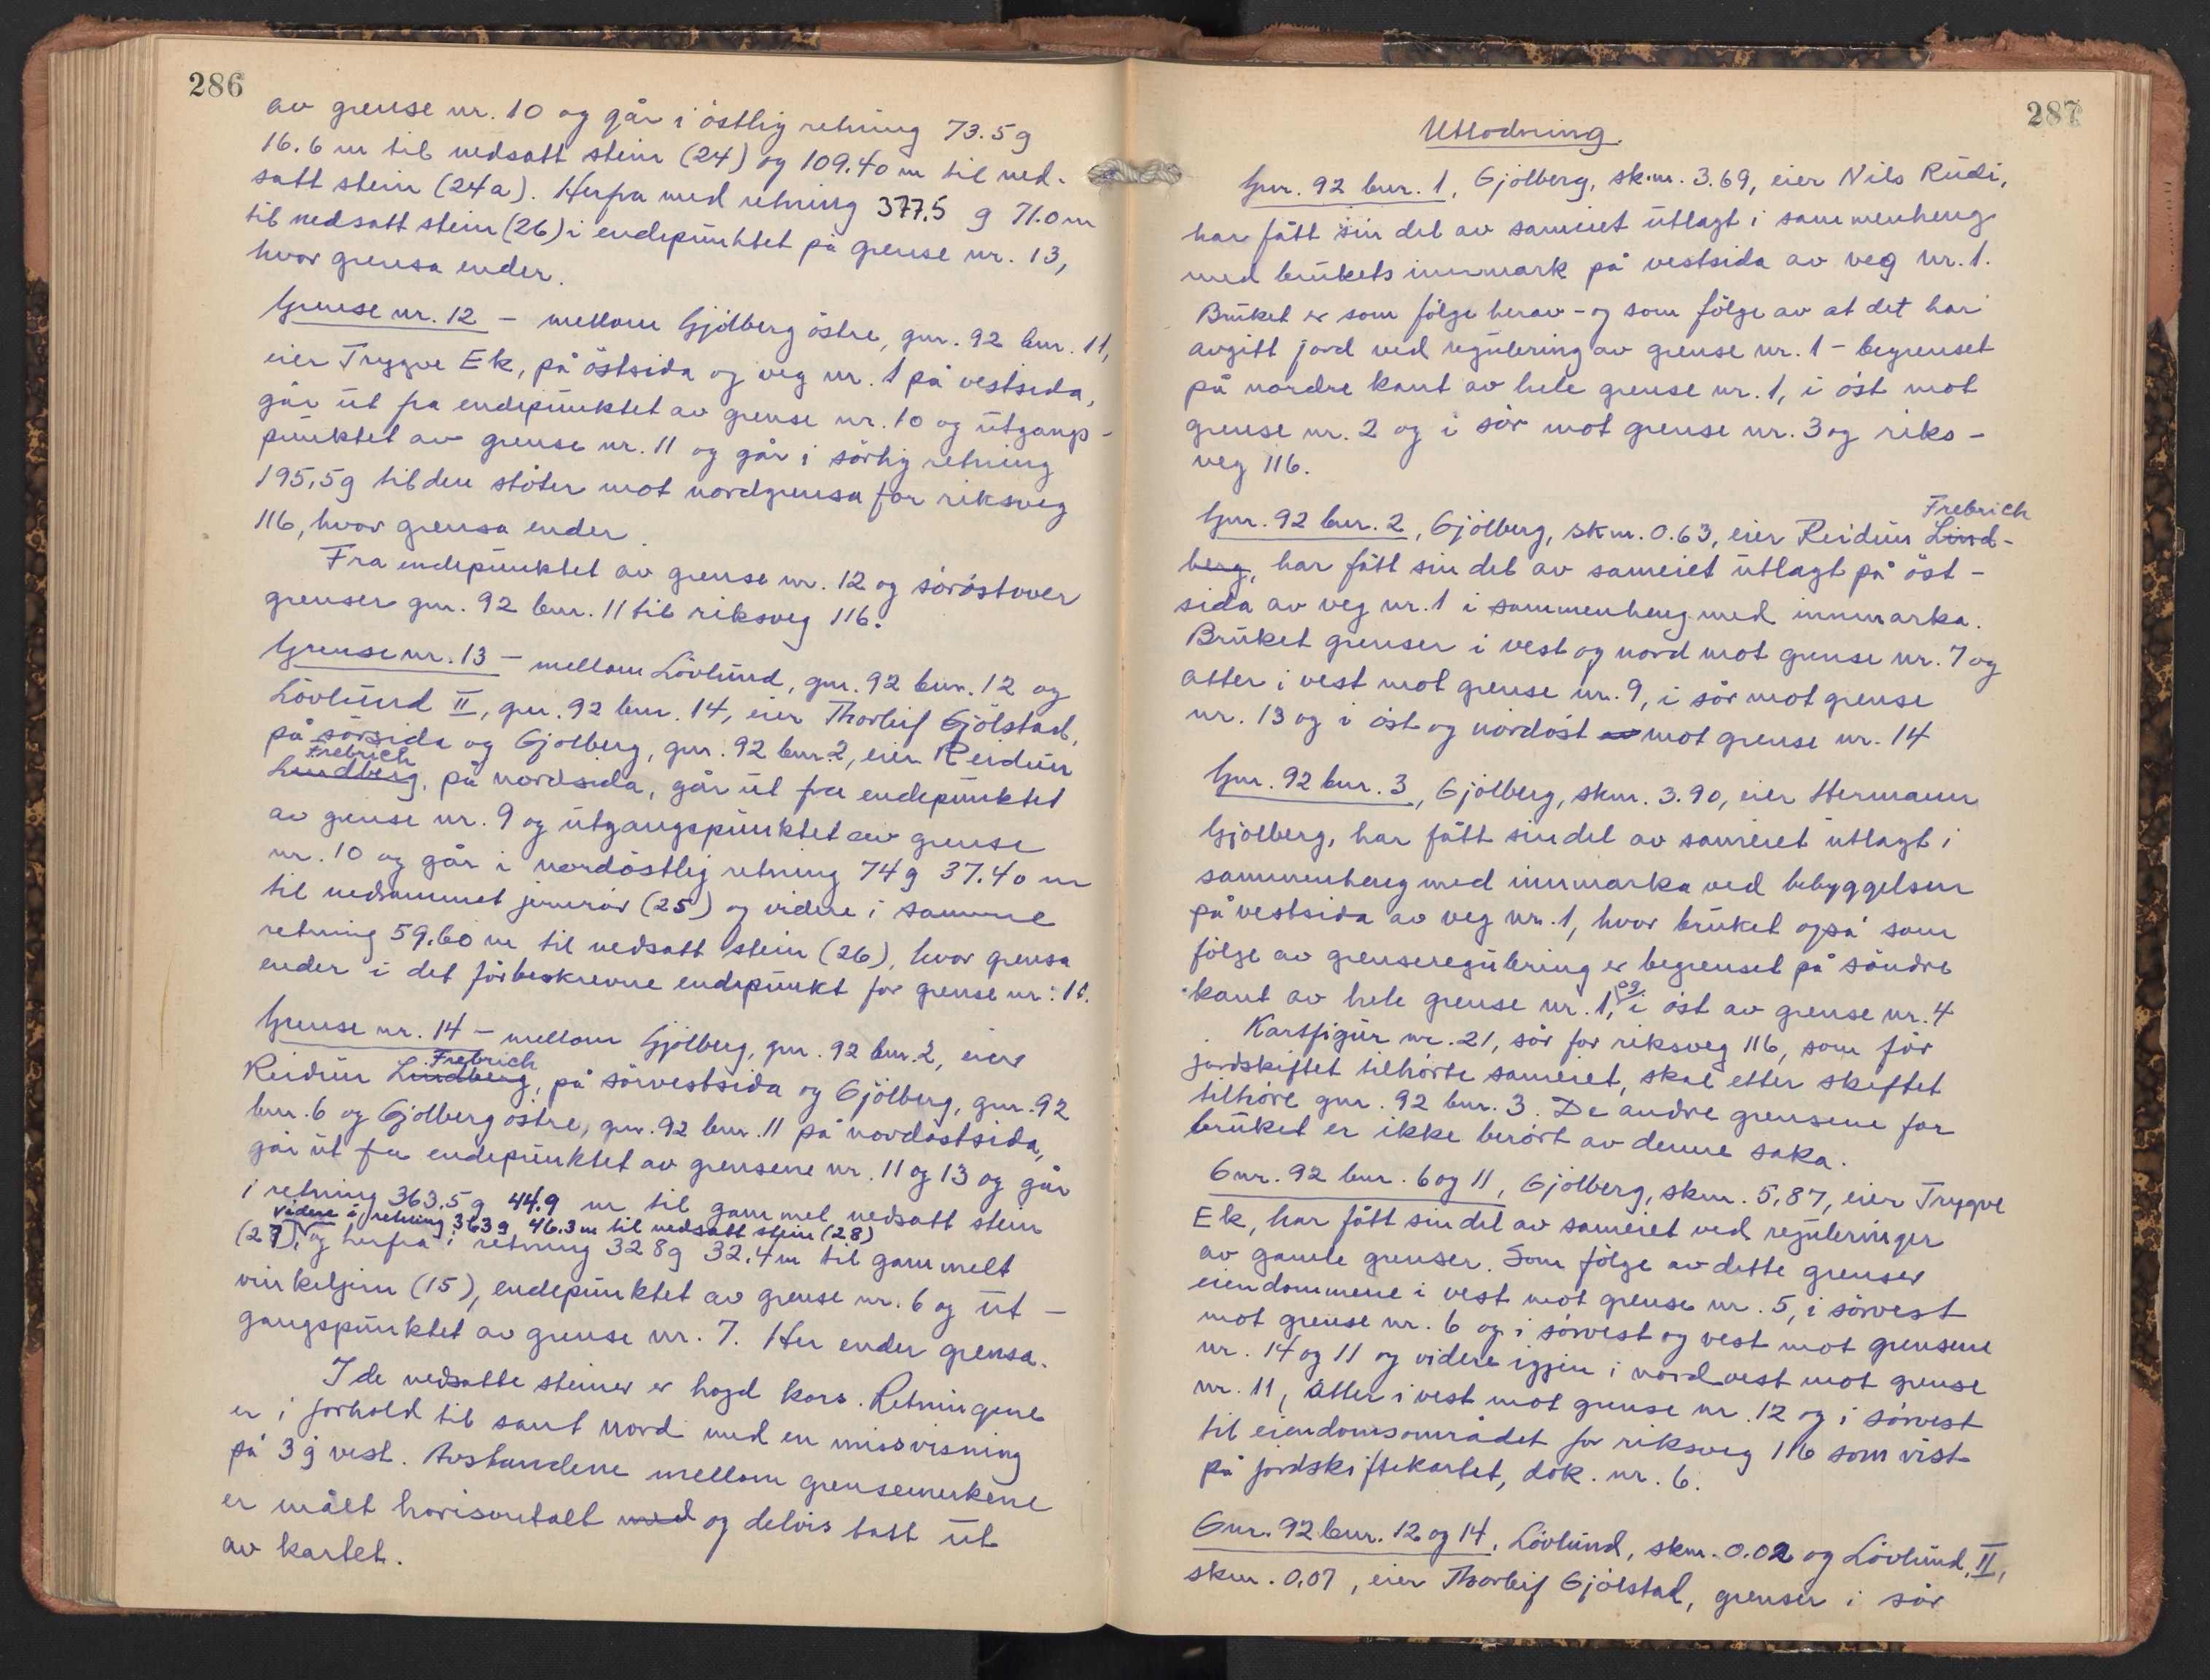 286
av grense nr. 10 og går i östlig retning 73.5g
16.6 m til nedsatt stein (24) og 109.40 m til ned-
satt stein (24a). Herfra med retning 377.5 g 71.0 m
til nedsatt stein (26) i endepunktet på grense nr. 13,
hvor grensa ender.
Grense nr. 12 – mellom Gjölberg östre, gnr. 92 bnr. 11,
eier Trygve Ek, på östsida og veg nr. 1 på vestsida,
går ut fra endepunktet av grense nr. 10 og utgangs-
punktet av grense nr. 11 og går i sörlig retning
195,5g til den stöter mot nordgrensa for riksveg
116, hvor grensa ender.
Fra endepunktet av grense nr. 12 og söröstover
grenser gnr. 92 bnr. 11 til riksveg 116.
Grense nr. 13 – mellom Lövlund, gnr. 92 bnr. 12 og
Lövlund II, gnr. 92 bnr. 14, eier Thorleif Gjölstad,
på sörsida og Gjölberg, gnr. 92 bnr. 2, eier Reidun
Frebrich
Lindberg, på nordsida, går ut fra endepunktet
av grense nr. 9 og utgangspunktet av grense
nr. 10 og går i nordöstlig retning 74g 37.40 m
til nedrammet jernrör (25) og videre i samme
retning 59.60 m til nedsatt stein (26), hvor grensa
ender i det förbeskrevne endepunkt for grense nr. 11.
Grense nr. 14 – mellom Gjölberg, gnr. 92 bnr. 2, eier
Frebrich
Reidun Lindberg, på sörvestsida og Gjölberg, gnr. 92
bnr. 6 og Gjölberg östre, gnr. 92 bnr. 11 på nordöstsida,
går ut fra endepunktet av grensene nr. 11 og 13 og går
i retning 363.5g 44.9 m til gammel nedsatt stein
videre i retning 363g 46.3m til nedsatt stein (28)
(27), og herfra i retning 328g 32.4m til gammelt
vinkeljern (15), endepunktet av grense nr. 6 og ut-
gangspunktet av grense nr. 7. Her ender grensa.
I de nedsatte steiner er hogd kors. Retningene
er i forhold til sant nord med en missvisning
på 3g vest. Avstandene mellom grensemerkene
er målt horisontalt med og delvis tatt ut
av kartet.
287
Utlodning.
Gnr. 92 bnr. 1, Gjölberg, skm. 3.69, eier Nils Rudi,
har fått sin del av sameiet utlagt i sammenheng
med brukets innmark på vestsida av veg nr. 1.
Bruket er som fölge herav – og som fölge av at det har
avgitt jord ved regulering av grense nr. 1 – begrenset
på nordre kant av hele grense nr. 1, i öst mot
grense nr. 2 og i sör mot grense nr. 3 og riks-
veg 116.
Frebrich
Gnr. 92 bnr. 2, Gjölberg, skm. 0.63, eier Reidun Lind-
berg, har fått sin del av sameiet utlagt på öst-
sida av veg nr. 1 i sammenheng med innmarka.
Bruket grenser i vest og nord mot grense nr. 7 og
atter i vest mot grense nr. 9, i sör mot grense
nr. 13 og i öst og nordöst av mot grense nr. 14
Gnr. 92 bnr. 3, Gjölberg, skm. 3.90, eier Hermann
Gjölberg, har fått sin del av sameiet utlagt i
sammenheng med innmarka ved bebyggelsen
på vestsida av veg nr. 1, hvor bruket også som
fölge av grenseregulering er begrenset på söndre
kant av hele grense nr. 1, og i öst av grense nr. 4
Kartfigur nr. 21, sör for riksveg 116, som för
jordskiftet tilhörte sameiet, skal etter skiftet
tilhöre gnr. 92 bnr. 3. De andre grensene for
bruket er ikke berört av denne saka.
Gnr. 92 bnr. 6 og 11, Gjölberg, skm. 5,87, eier Trygve
Ek, har fått sin del av sameiet ved reguleringer
av gamle grenser. Som fölge av dette grenser
eiendommene i vest mot grense nr. 5, i sörvest
mot grense nr. 6 og i sörvest og vest mot grensene
nr. 14 og 11 og videre igjen i nordvest mot grense
nr. 11, atter i vest mot grense nr. 12 og i sörvest
til eiendomsområdet for riksveg 116 som vist
på jordskiftekartet, dok. nr. 6.
Gnr. 92 bnr. 12 og 14, Lövlund, skm. 0.02 og Lövlund II,
skm. 0,07, eier Thorleif Gjölstad, grenser i sör